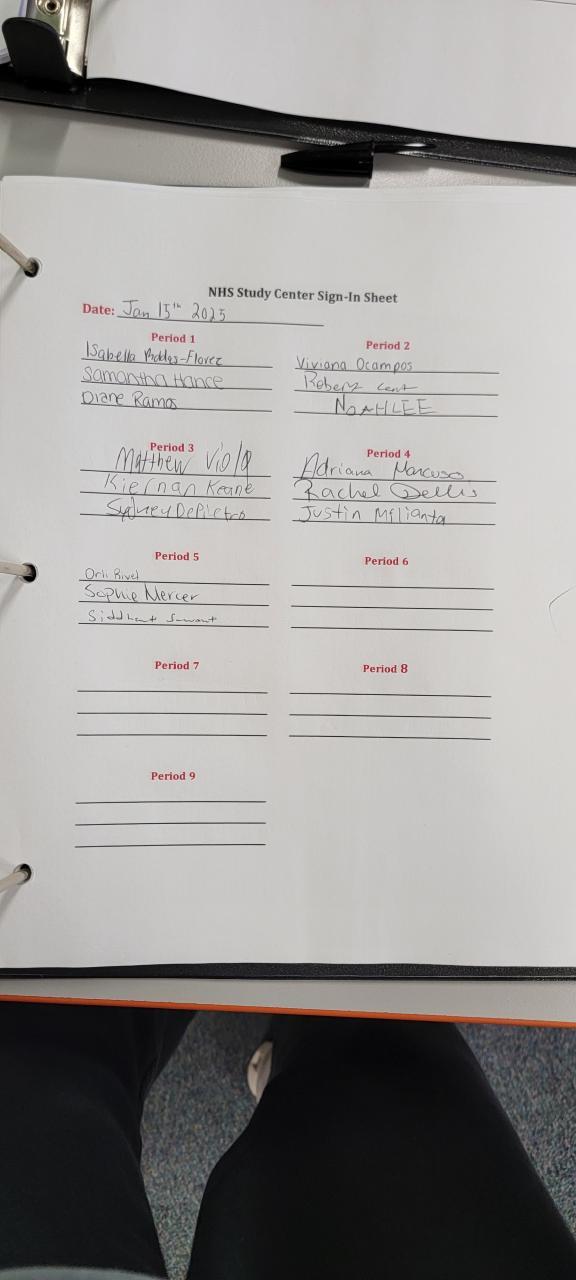 NHS Study Center Sign-In Sheet
Date: Jan 15th 2025
Period 1
Isabella
Samantha Hance
Diane Ramos
Period 2
Viviana Ocampos
Robert
NOAH LEE
Period 3
Matthew Viola
Kiernan Keane
Sydney DePietro
Period 4
Adriana Marcuso
Rachel Dellis
Justin Milianta
Period 5
Orli
Sophie Mercer
Siddhant Sawant
Period 6
Period 7
Period 8
Period 9